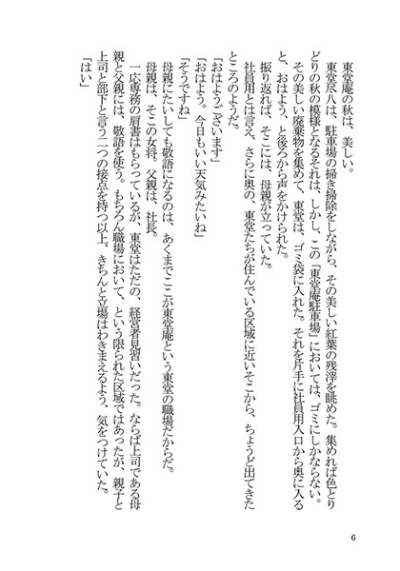 東堂庵の秋は、美しい。
東堂尽八は、駐車場の掃き掃除をしながら、その美しい紅葉の残滓を眺めた。集めれば色とり
どりの秋の模様となるそれは、しかし、この「東堂庵駐車場」においては、ゴミにしかならない。
その美しい廃棄物を集めて、東堂は、ゴミ袋に入れた。それを片手に社員用入口から奥に入る
と、おはよう、と後ろから声をかけられた。
振り返れば、そこには、母親が立っていた。
社員用とは言え、さらに奥の、東堂たちが住んでいる区域に近いそこから、ちょうど出てきた
ところのようだ。
「おはようございます」
「おはよう。今日もいい天気みたいね」
「そうですね」
母親にたいしても敬語になるのは、あくまでここが東堂庵という東堂の職場だからだ。
母親は、そこの女将。父親は、社長。
一応専務の肩書はもらっているが、東堂はただの、経営者見習いだった。ならば上司である母
親と父親には、敬語を使う。もちろん職場において、という限られた区域ではあったが、親子と
上司と部下と言う二つの接点を持つ以上、きちんと立場はわきまえるよう、気をつけていた。
「はい」
6